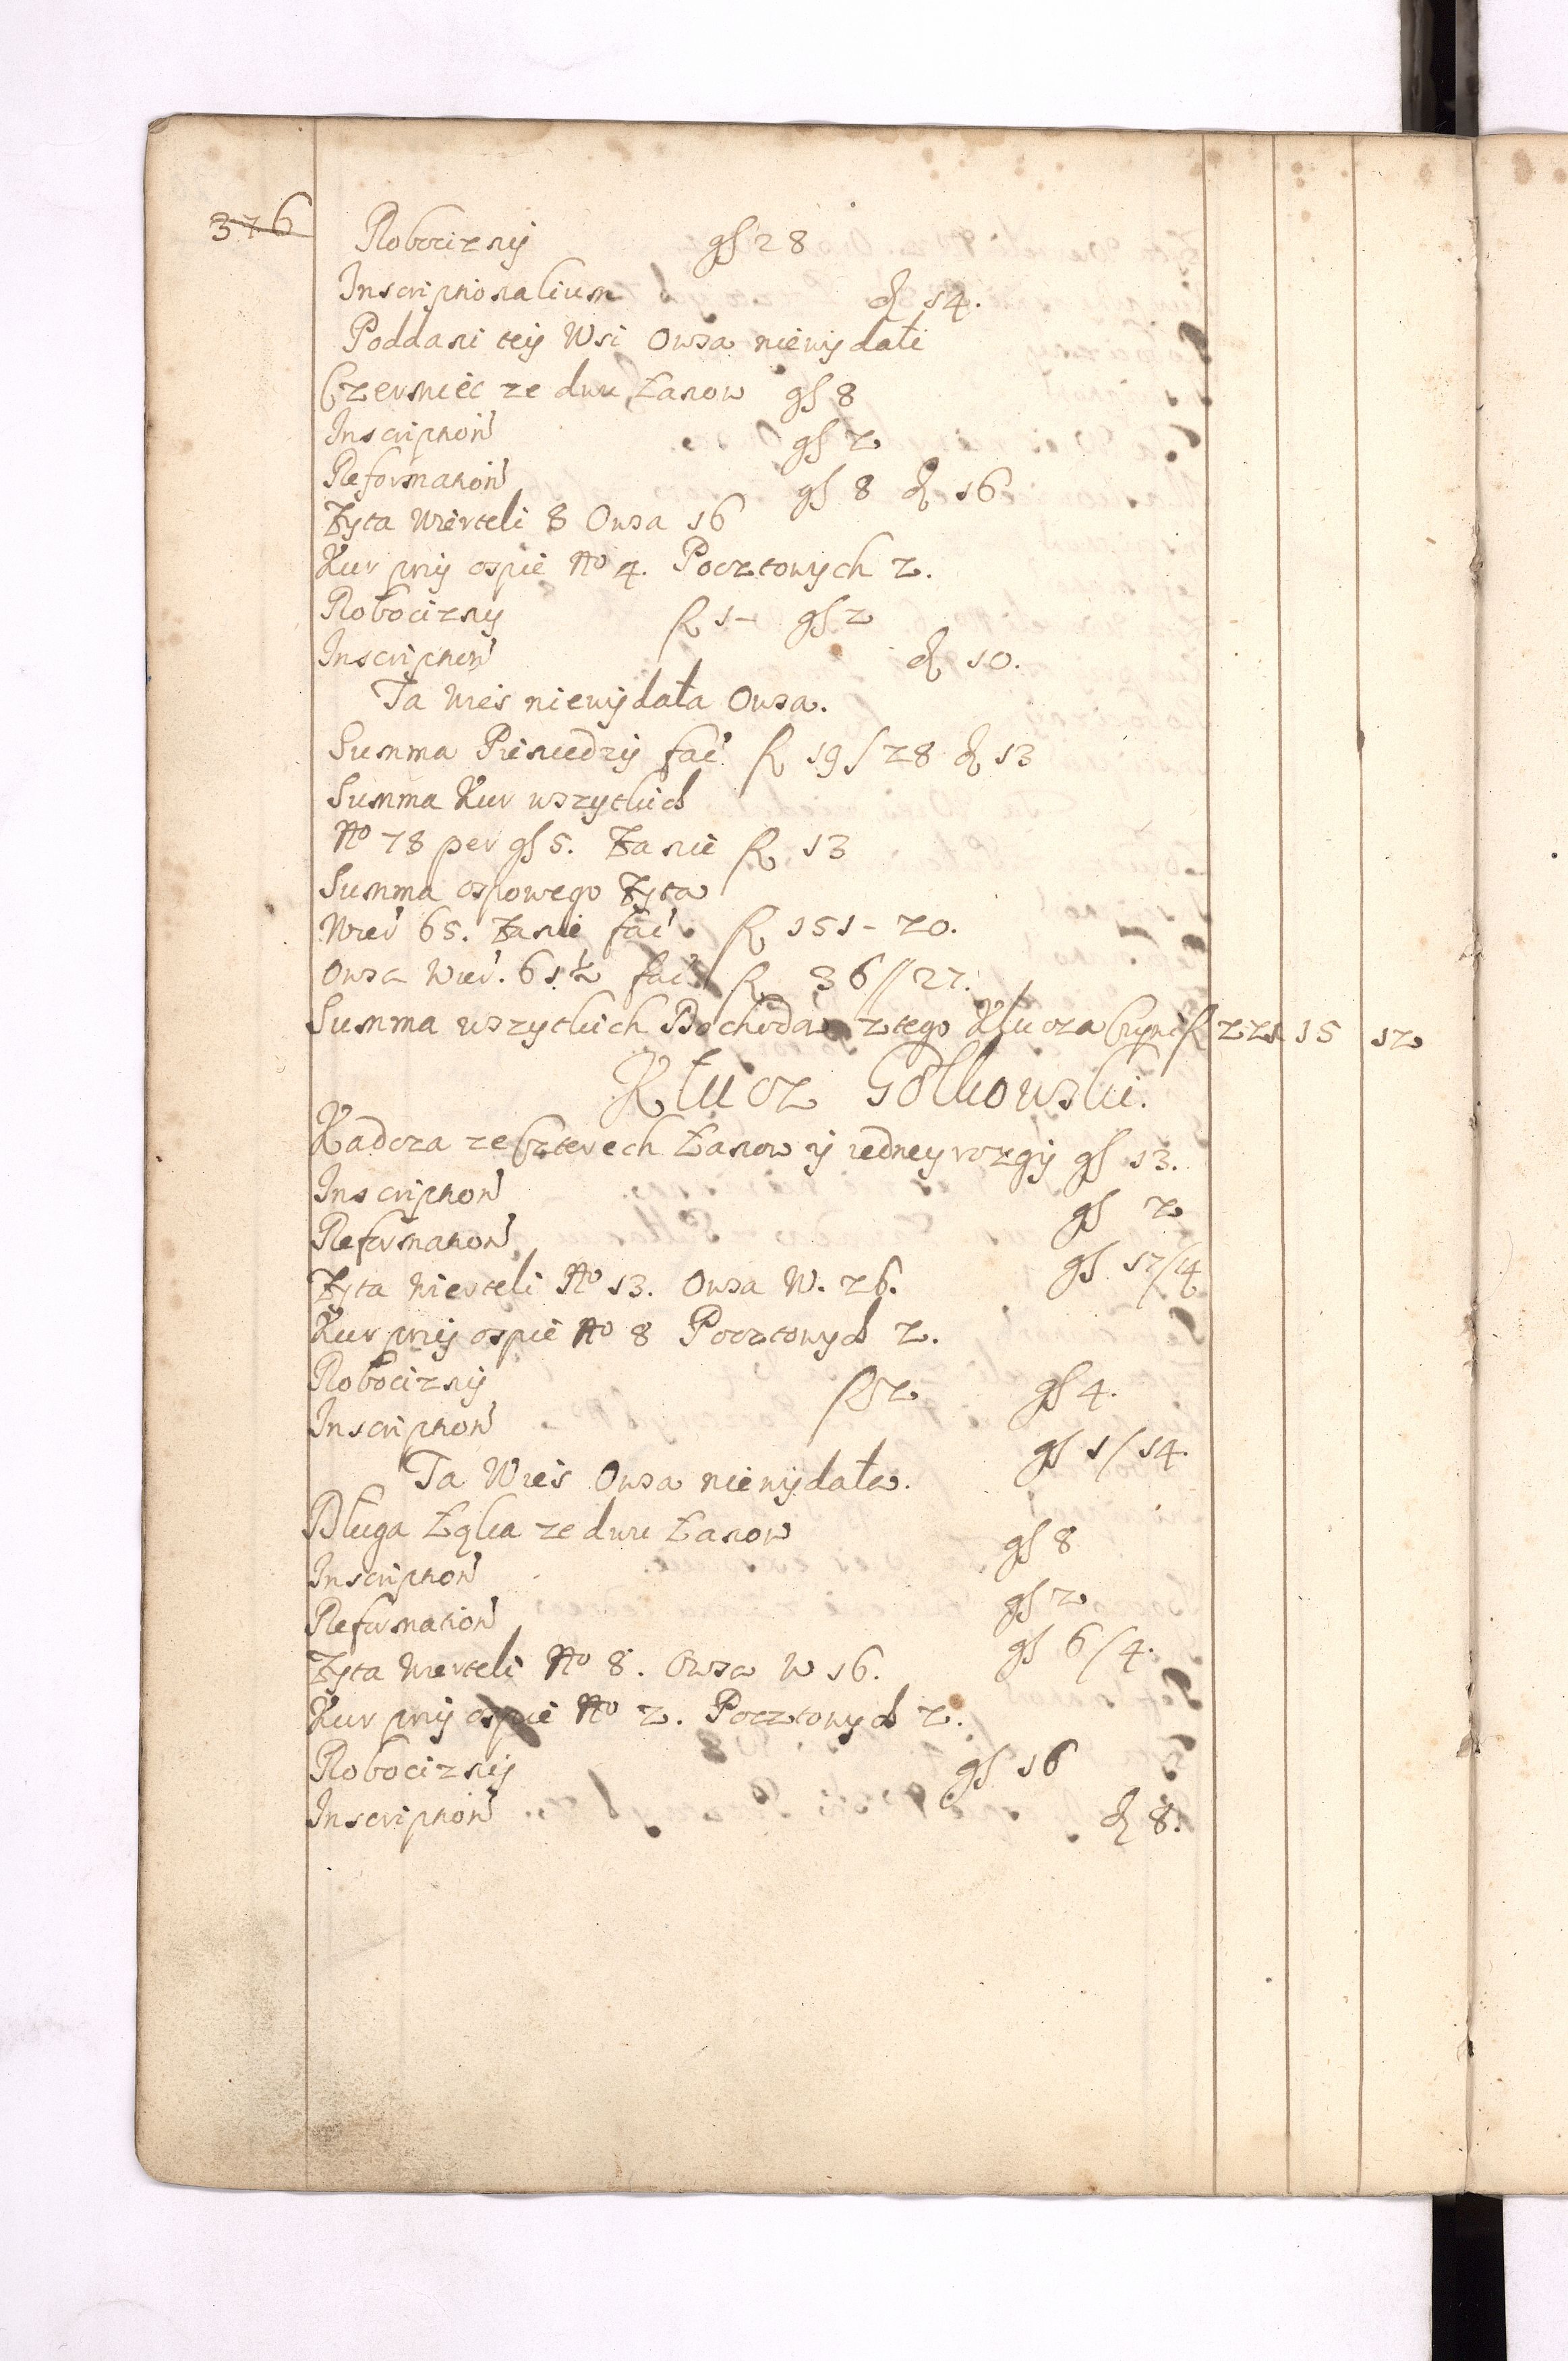 376
Robocizny gł 28
Inscriptionalium d 14.
Poddani tey Wsi Owsa niewydali
Czerniec ze dwu Łanow gł 8
Inscription gł 2
Reformation gł 8 d 16
Zyta Wierteli 8 Owsa 16
Kur przy ospie No 4. Pocztowych 2.
Robocizny R 1- gł 2
Inscription d 10.
Ta Wies niewydała Owsa.
Summa Pieniedzy fac R 19/28 d 13
Summa Kur wszytkich
No 78 per gł 5. Za nie R 13
Summa ospowego Zyta
Wier 65. Za nie fac R 151-20.
Owsa Wier. 61½ fac R 36//27.
Summa wszytkich Dochodow ztego Klucza Czyni R 221 15 12
Klucz Gołkowski.
Kadcza ze Czterech Łanow y iedney rozgy gł 13.
Inscription gł 2
Reformation gł 17/4
Zyta Wierteli No 13. Owsa W. 26.
Kur przy ospie No 8 Pocztowych 2.
Robocizny R 2 gł 4.
Inscription gł 1/14.
Ta Wies Owsa niewydała.
Długa Łąka ze dwu Łanow gł 8
Inscription gł 2
Reformation gł 6/4.
Zyta Wierteli No 8. Owsa W 16.
Kur przy ospie No 2. Pocztowych 2.
Robocizny gł 16
Inscription d 8.